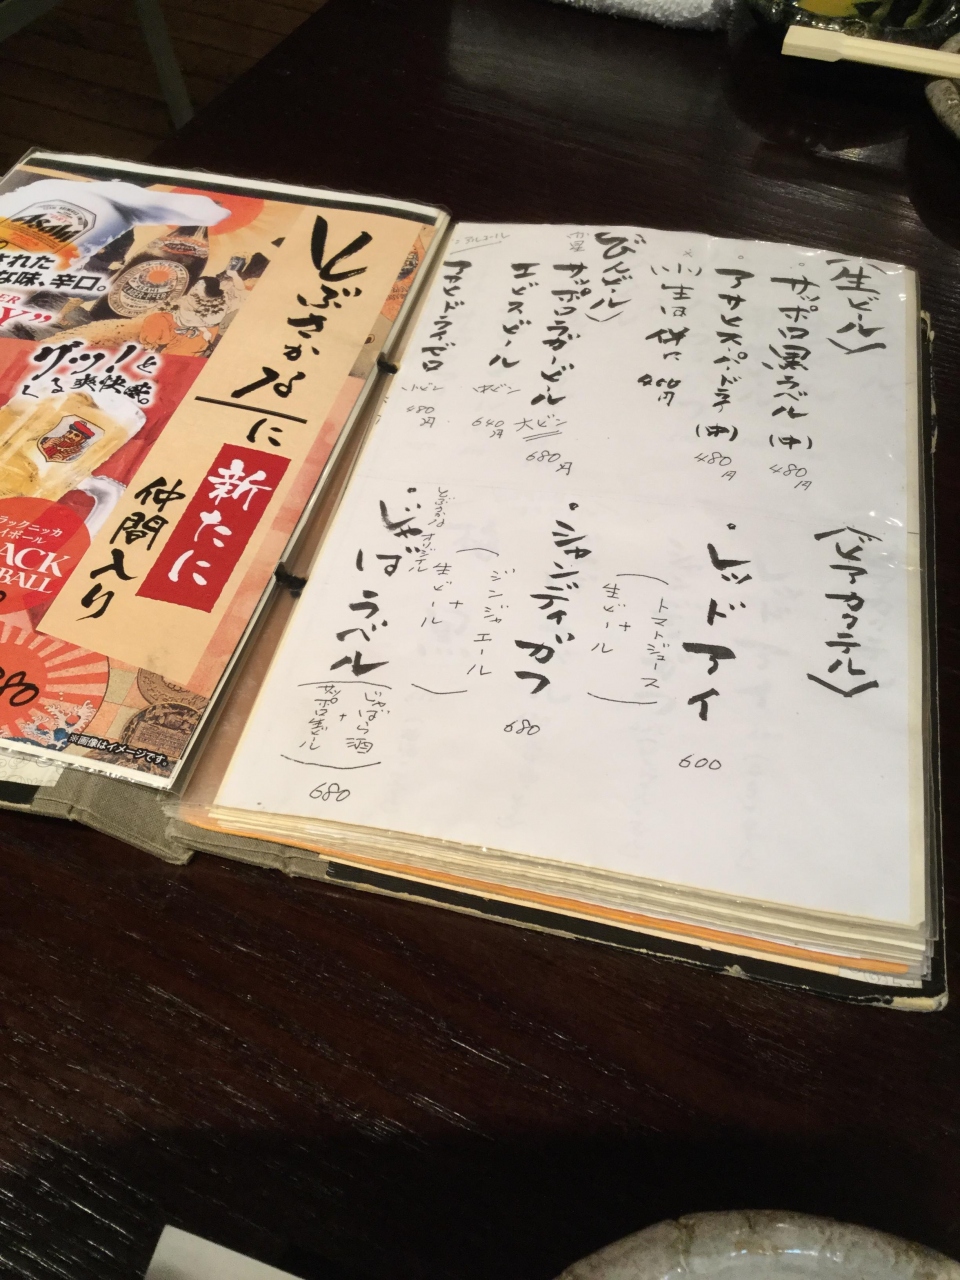 〈生ビール〉
・サッポロ黒ラベル(中)
480円
・アサヒスーパードライ(中)
480円
小生は併に
400円
〈びんビール〉
サッポロラガービール
大ビン
680円
エビスビール
中ビン
640円
アサヒドライゼロ
小ビン
480円
〈ビアカクテル〉
・レッドアイ
(トマトジュース
+
生ビール)
600
・シャンディガフ
(ジンジャエール
+
生ビール)
680
とぶさかなオリジナル
・じゃばラベル
(じゃばら酒
+
サッポロ生ビール)
680
とぶさかなに
新たに
仲間入り
Asahi
な味、辛口。
グッ!と
くる爽快味。
ラックニッカ
イボール
ACK
BALL
※画像はイメージです。